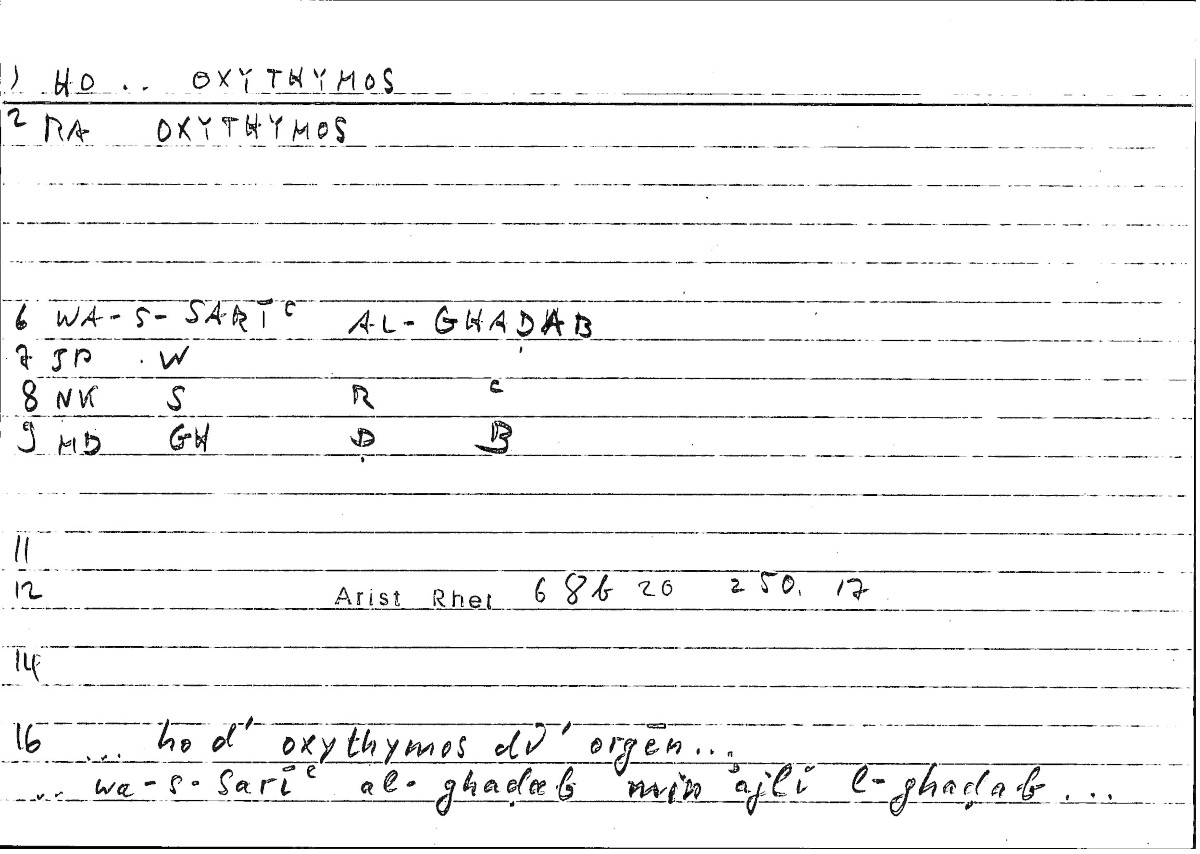 1) HO .. OXYTHYMOS
2 RA OXYTHYMOS
6 WA-S-SARĪʿ AL-GHAḌAB
7 JP . W
8 NK S R ʿ
9 MD GH Ḍ B
11
12 Arist Rhet 68b 20 250. 17
14
16 ... ho d' oxythymos di' orgēn...
... wa-s-sarīʿ al-ghaḍab min ʾajli l-ghaḍab ...